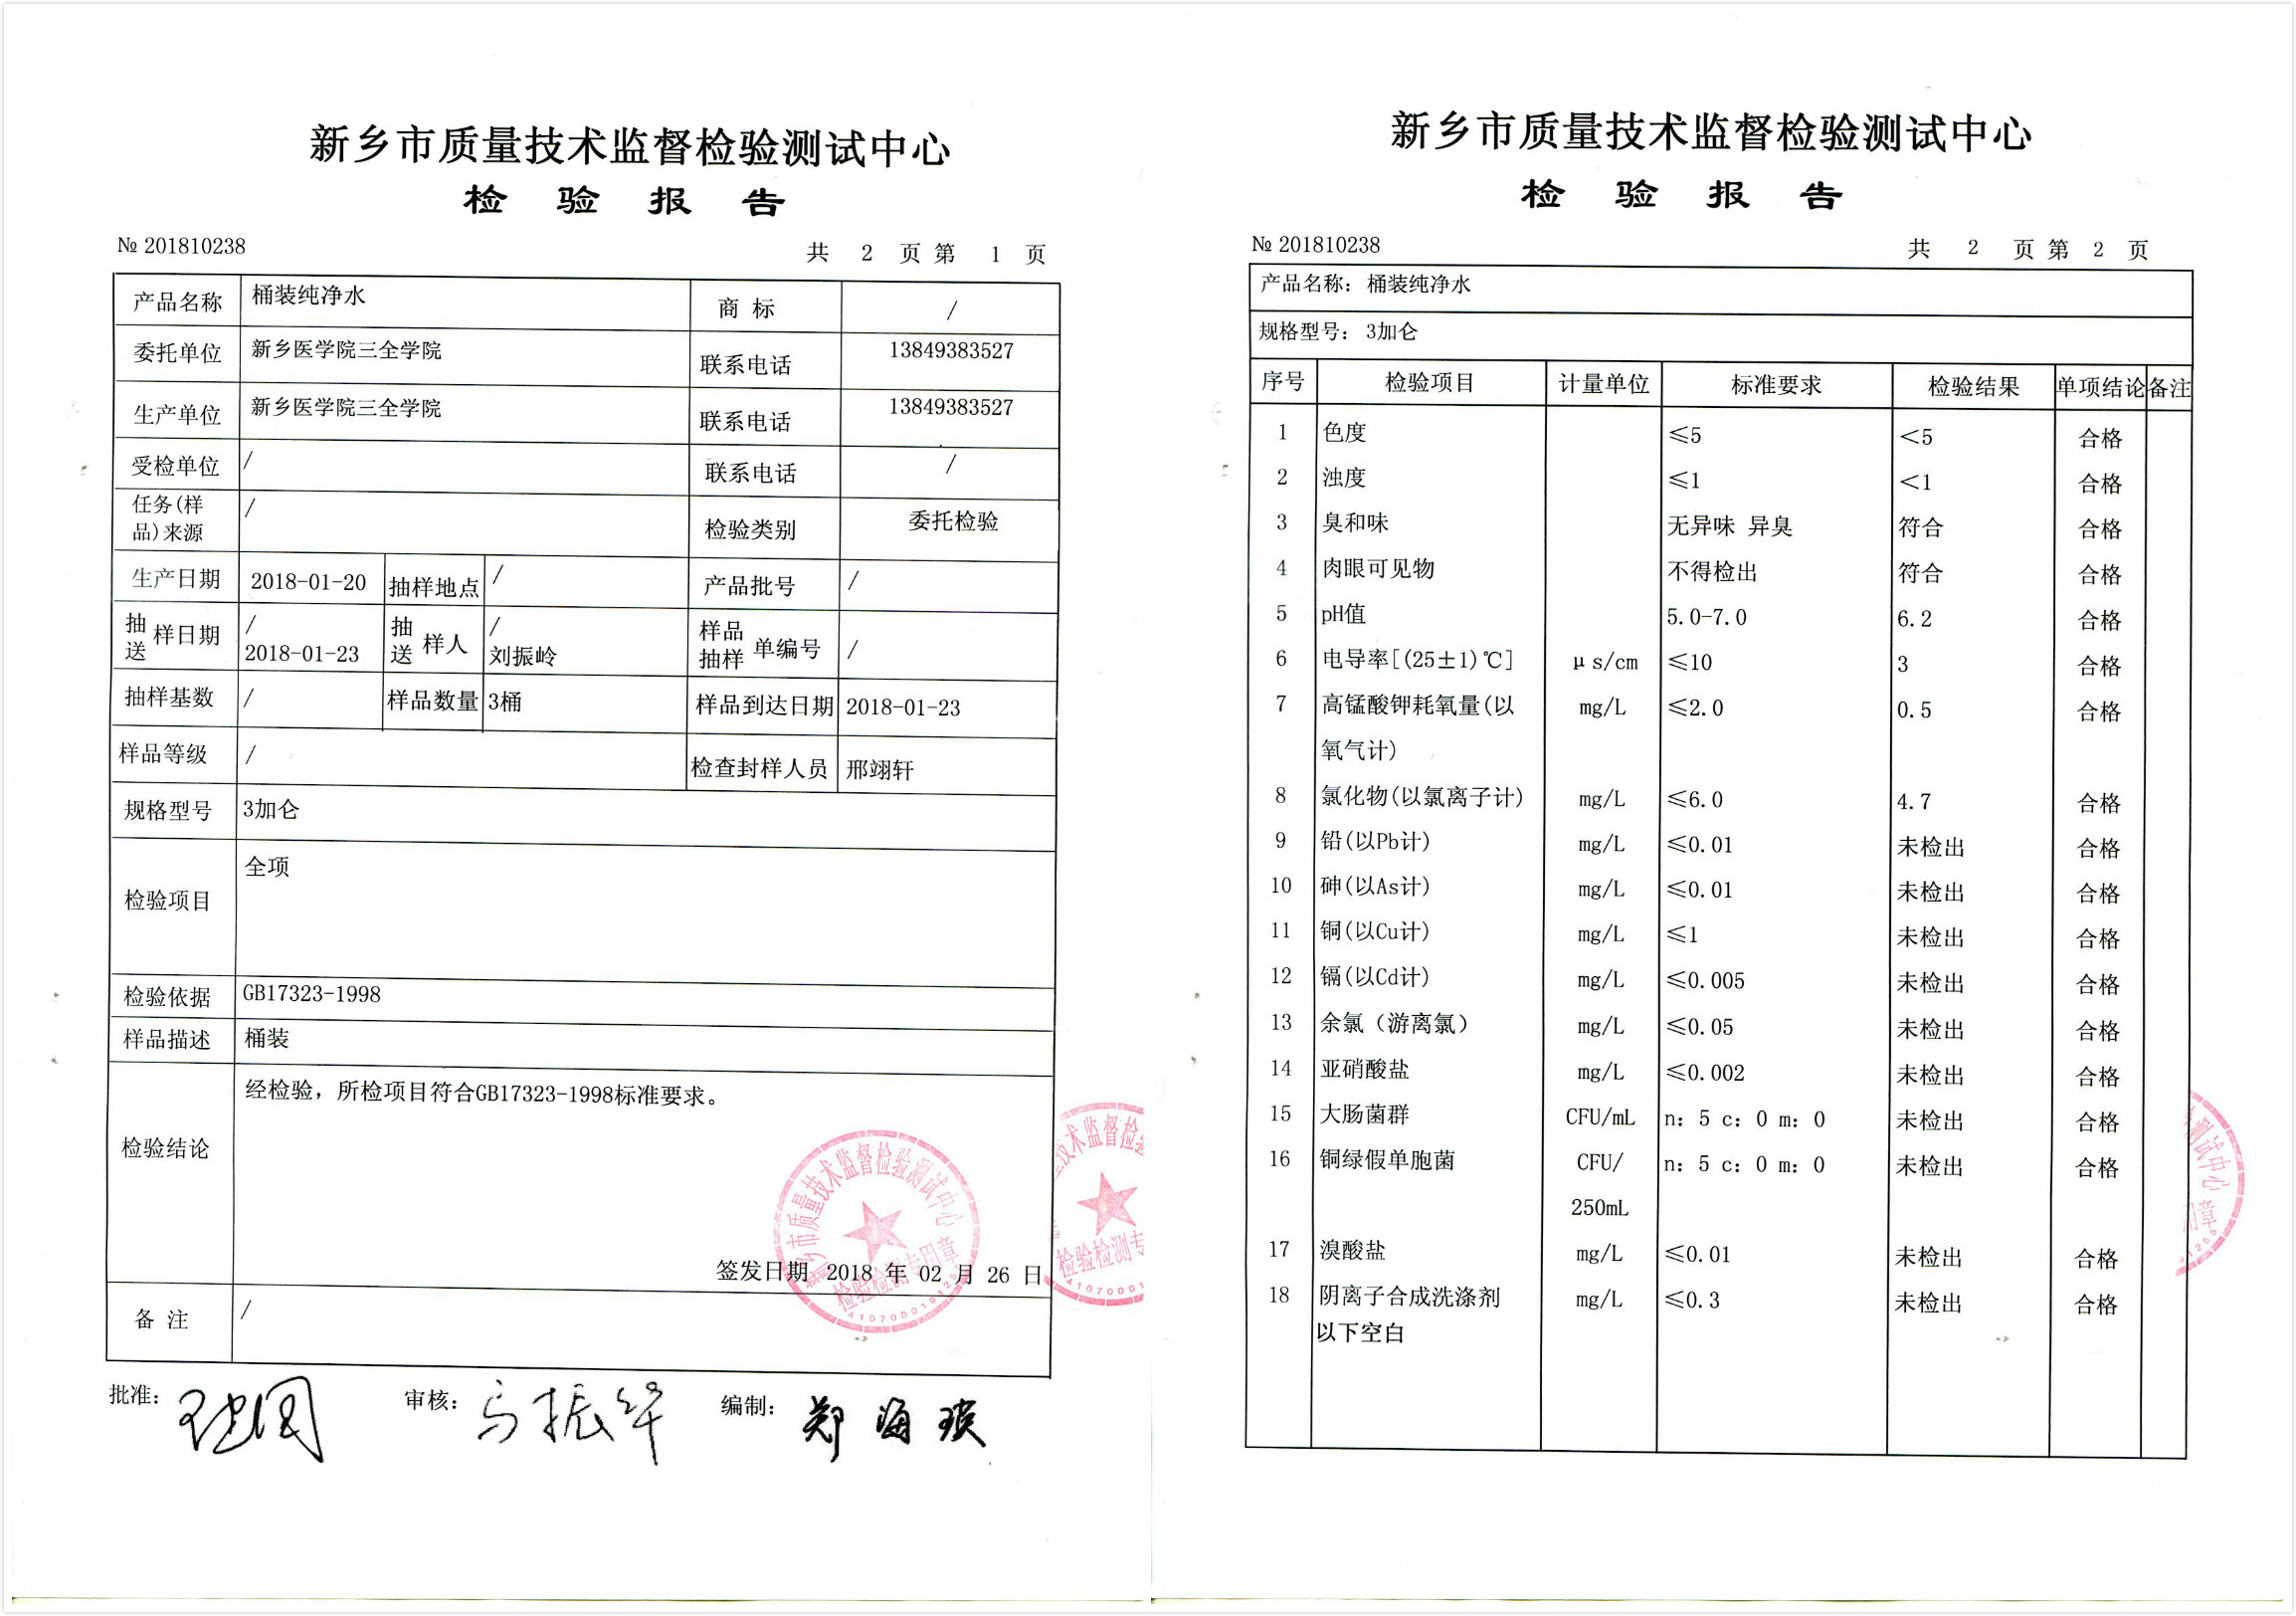 新乡市质量技术监督检验测试中心
检 验 报 告
№ 201810238
共 2 页 第 1 页
产品名称 桶装纯净水 商 标 /
委托单位 新乡医学院三全学院 联系电话 13849383527
生产单位 新乡医学院三全学院 联系电话 13849383527
受检单位 / 联系电话 /
任务(样品)来源 / 检验类别 委托检验
生产日期 2018-01-20 抽样地点 / 产品批号 /
抽 样日期 / 抽 样人 / 样品 单编号 /
送 2018-01-23 送 刘振岭 抽样
抽样基数 / 样品数量 3桶 样品到达日期 2018-01-23
样品等级 / 检查封样人员 邢翊轩
规格型号 3加仑
检验项目 全项
检验依据 GB17323-1998
样品描述 桶装
检验结论 经检验，所检项目符合GB17323-1998标准要求。
签发日期 2018 年 02 月 26 日
备 注 /
批准：
审核： 马振华
编制： 郑海琐
市质量技术监督检验测试中心
检验检测专用章
技术监督检
检验检测专
新乡市质量技术监督检验测试中心
检 验 报 告
№ 201810238
共 2 页 第 2 页
产品名称：桶装纯净水
规格型号：3加仑
序号 检验项目 计量单位 标准要求 检验结果 单项结论 备注
1 色度 ≤5 <5 合格
2 浊度 ≤1 <1 合格
3 臭和味 无异味 异臭 符合 合格
4 肉眼可见物 不得检出 符合 合格
5 pH值 5.0-7.0 6.2 合格
6 电导率[(25±1)℃] μs/cm ≤10 3 合格
7 高锰酸钾耗氧量(以 mg/L ≤2.0 0.5 合格
氧气计)
8 氯化物(以氯离子计) mg/L ≤6.0 4.7 合格
9 铅(以Pb计) mg/L ≤0.01 未检出 合格
10 砷(以As计) mg/L ≤0.01 未检出 合格
11 铜(以Cu计) mg/L ≤1 未检出 合格
12 镉(以Cd计) mg/L ≤0.005 未检出 合格
13 余氯（游离氯） mg/L ≤0.05 未检出 合格
14 亚硝酸盐 mg/L ≤0.002 未检出 合格
15 大肠菌群 CFU/mL n: 5 c: 0 m: 0 未检出 合格
16 铜绿假单胞菌 CFU/ n: 5 c: 0 m: 0 未检出 合格
250mL
17 溴酸盐 mg/L ≤0.01 未检出 合格
18 阴离子合成洗涤剂 mg/L ≤0.3 未检出 合格
以下空白
测试中心
用章